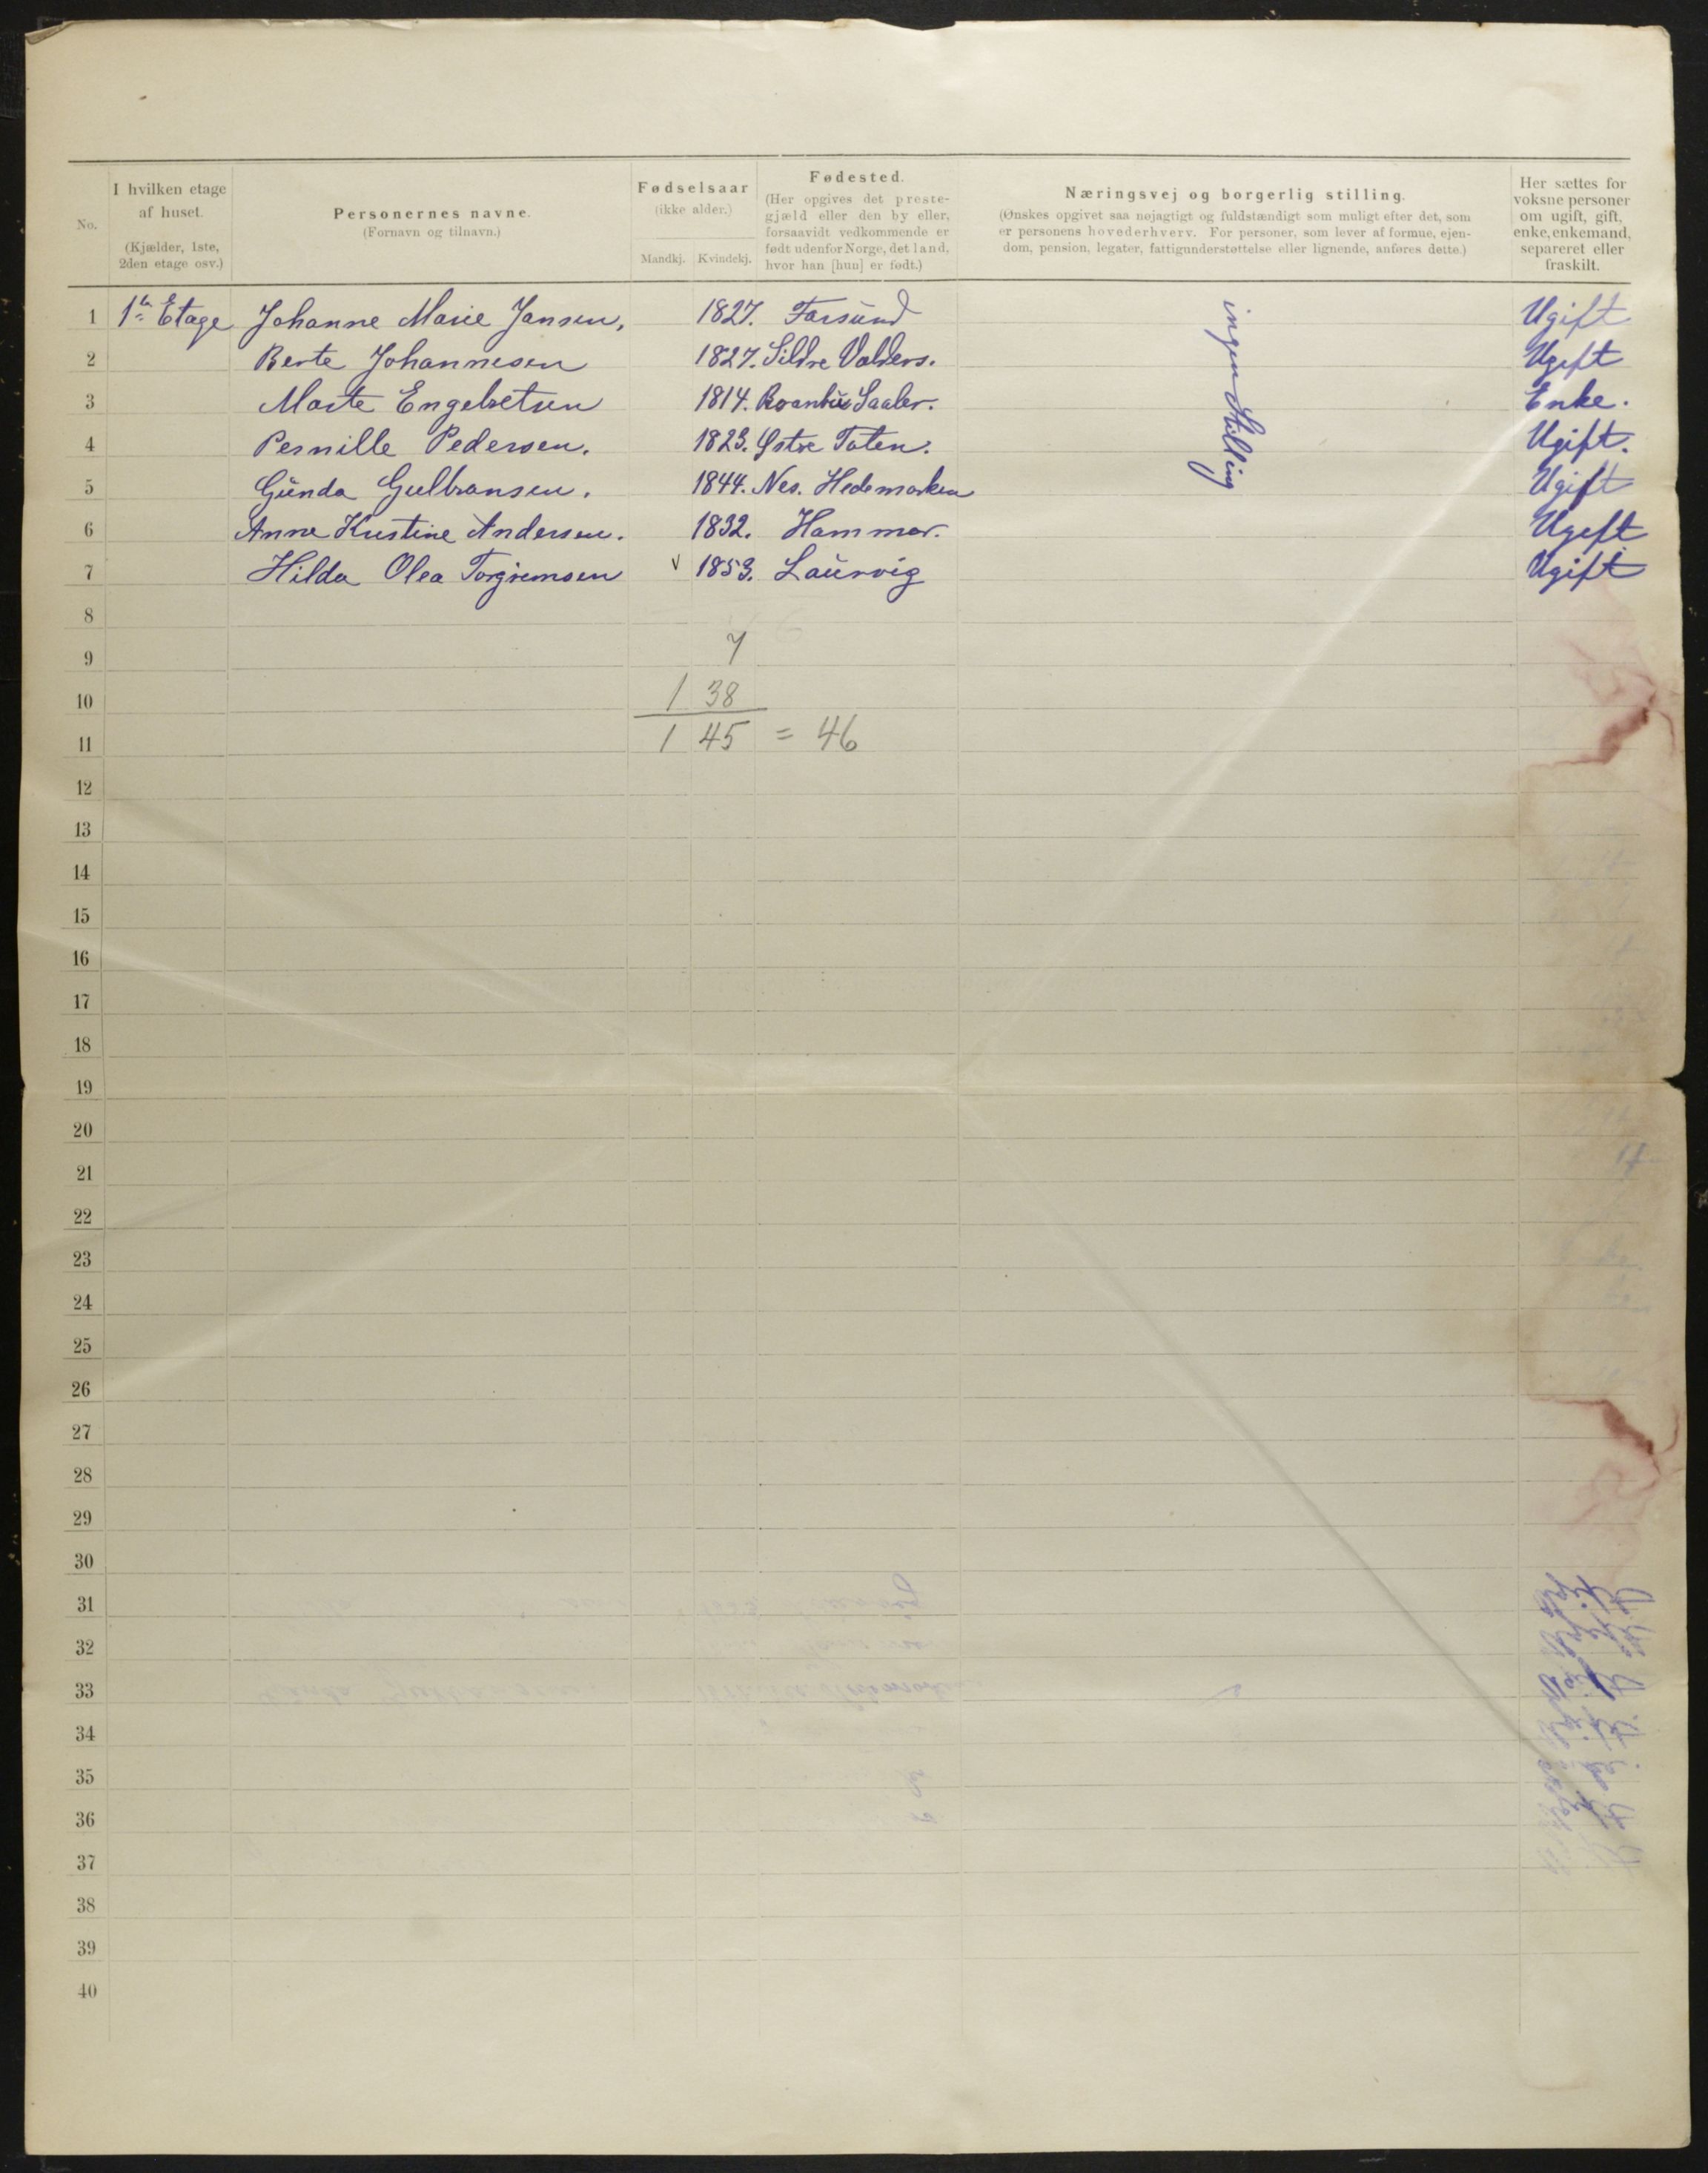 No.
I hvilken etage af huset.
(Kjælder, 1ste, 2den etage osv.)
Personernes navne.
(Fornavn og tilnavn.)
Fødselsaar
(ikke alder.)
Mandkj. Kvindekj.
Fødested.
(Her opgives det preste-
gjæld eller den by eller,
forsaavidt vedkommende er
født udenfor Norge, det land,
hvor han [hun] er født.)
Næringsvej og borgerlig stilling.
(Ønskes opgivet saa nøjagtigt og fuldstændigt som muligt efter det, som
er personens hovederhverv. For personer, som lever af formue, ejen-
dom, pension, legater, fattigunderstøttelse eller lignende, anføres dette.)
Her sættes for
voksne personer
om ugift, gift,
enke, enkemand,
separeret eller
fraskilt.
1 1ste Etage Johanne Marie Jansen, 1827. Farsund ingen Stilling Ugift
2 Berte Johannesen 1827. Slidre Valders. Ugift
3 Marte Engebretsen 1814. Saaler. Enke.
4 Pernille Pedersen. 1823. Østre Toten. Ugift.
5 Gunda Gulbransen. 1844. Nes. Hedemarken Ugift
6 Anne Kristine Andersen. 1832. Hammar. Ugift
7 Hilda Olea Torgrimsen v 1853. Laurvig Ugift
8
9 7
10 1 38
11 1 45 = 46
12
13
14
15
16
17
18
19
20
21
22
23
24
25
26
27
28
29
30
31
32
33
34
35
36
37
38
39
40